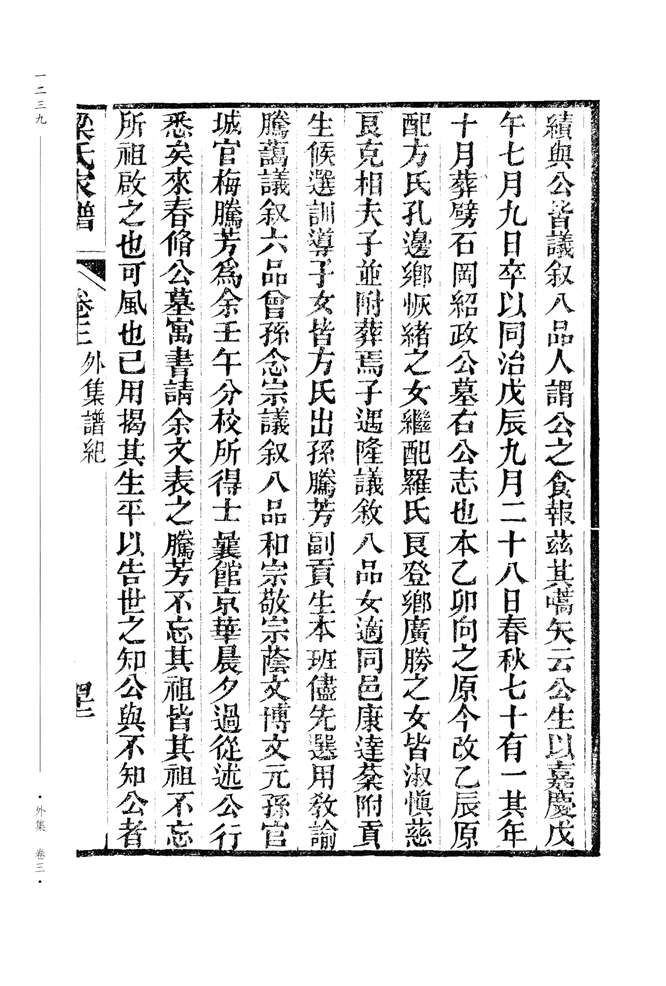 績與公皆議叙八品人謂公之食報茲其嚆矢云公生以嘉慶戊
午七月九日卒以同治戊辰九月二十八日春秋七十有一其年
十月葬劈石岡紹政公墓右公志也本乙卯向之原今改乙辰原
配方氏孔邊鄉恢緒之女繼配羅氏艮登鄉廣勝之女皆淑慎慈
艮克相夫子並附葬焉子遇隆議敘八品女適同邑康達棻附貢
生候選訓導子女皆方氏出孫騰芳副貢生本班儘先選用教諭
騰藹議叙六品曾孫念宗議叙八品和宗敬宗蔭文博文元孫官
城官梅騰芳為余壬午分校所得士曩館京華晨夕過從述公行
悉矣來春脩公墓寓書請余文表之騰芳不忘其祖皆其祖不忘
所祖啟之也可風也已用揭其生平以告世之知公與不知公者
梁氏家譜 卷三 外集譜紀
一二三九
·外集 卷三·